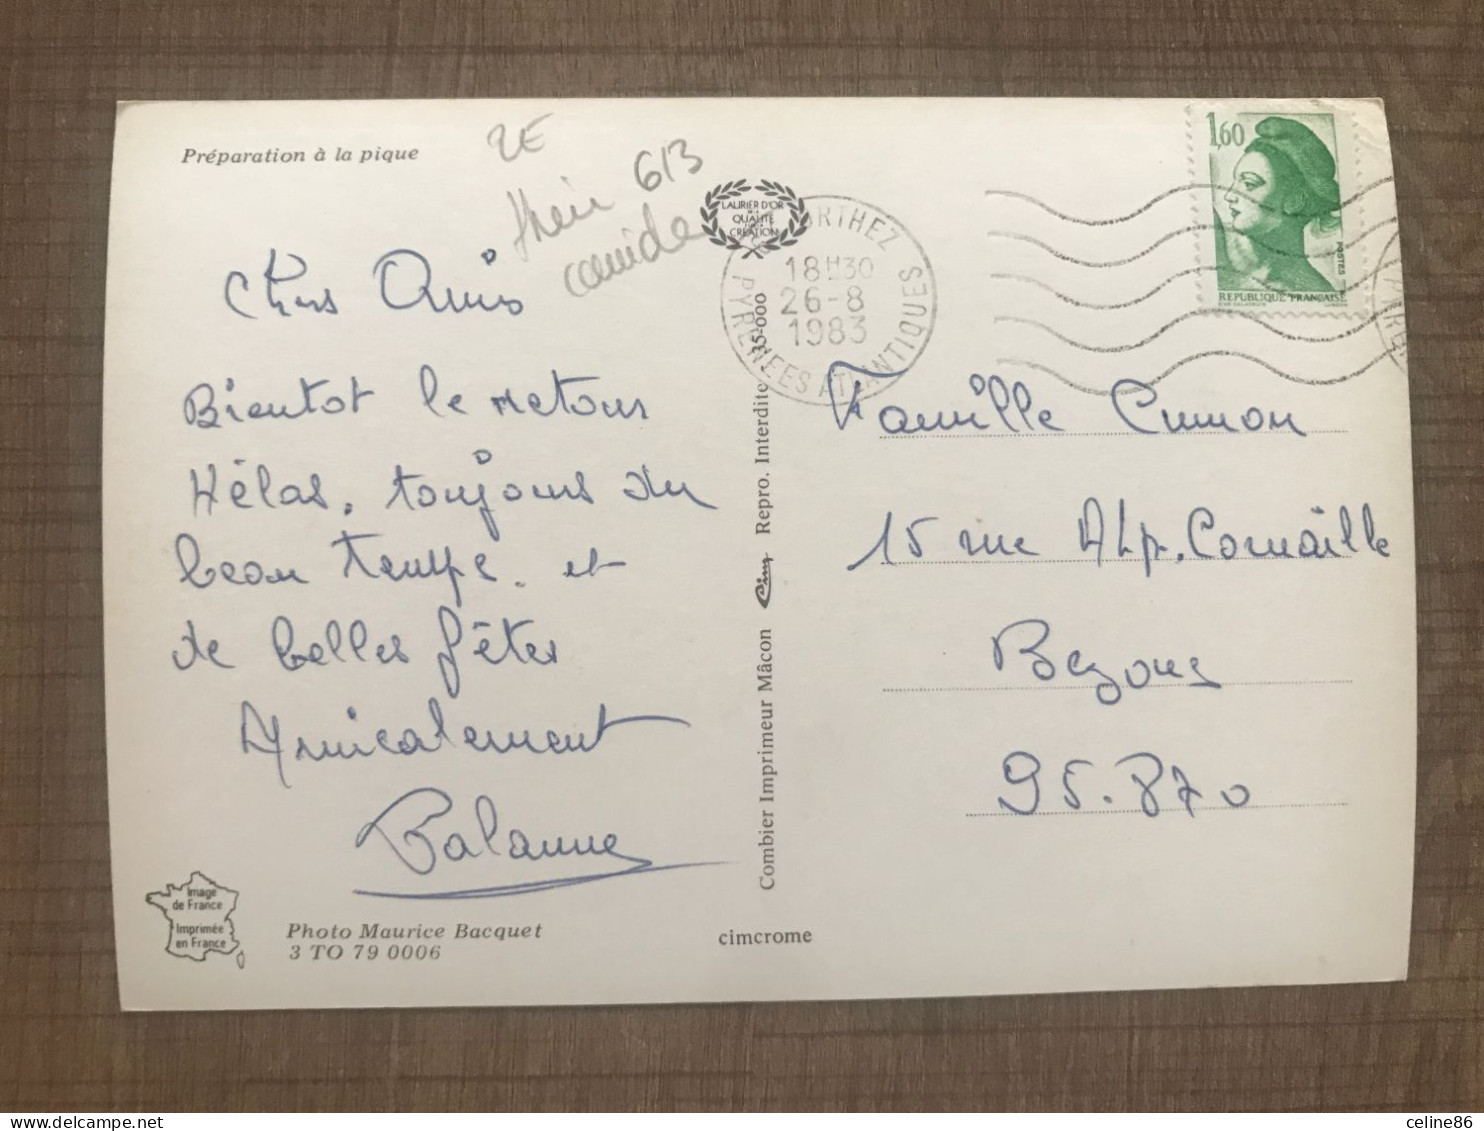 Préparation à la pique
2E
613
LAURIER D'OR
QUALITE
CREATION
ORTHEZ
18H30
26-8
1983
PYRENEES ATLANTIQUES
1,60
POSTES
REPUBLIQUE FRANÇAISE
Chers Amis
Bientot le retour
Hélas, toujours du
beau temps. et
de belles fêtes
Amicalement
Famille Cumon
15 rue Alp. Cornaille
Bezons
95.870
35-000
Combier Imprimeur Mâcon Cim Repro. Interdite
Image
de France
Imprimée
en France
Photo Maurice Bacquet
3 TO 79 0006
cimcrome
celine86